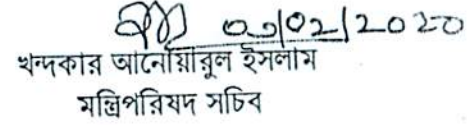 ০৩/০2/2020
খন্দকার আনোয়ারুল ইসলাম
মন্ত্রিপরিষদ সচিব